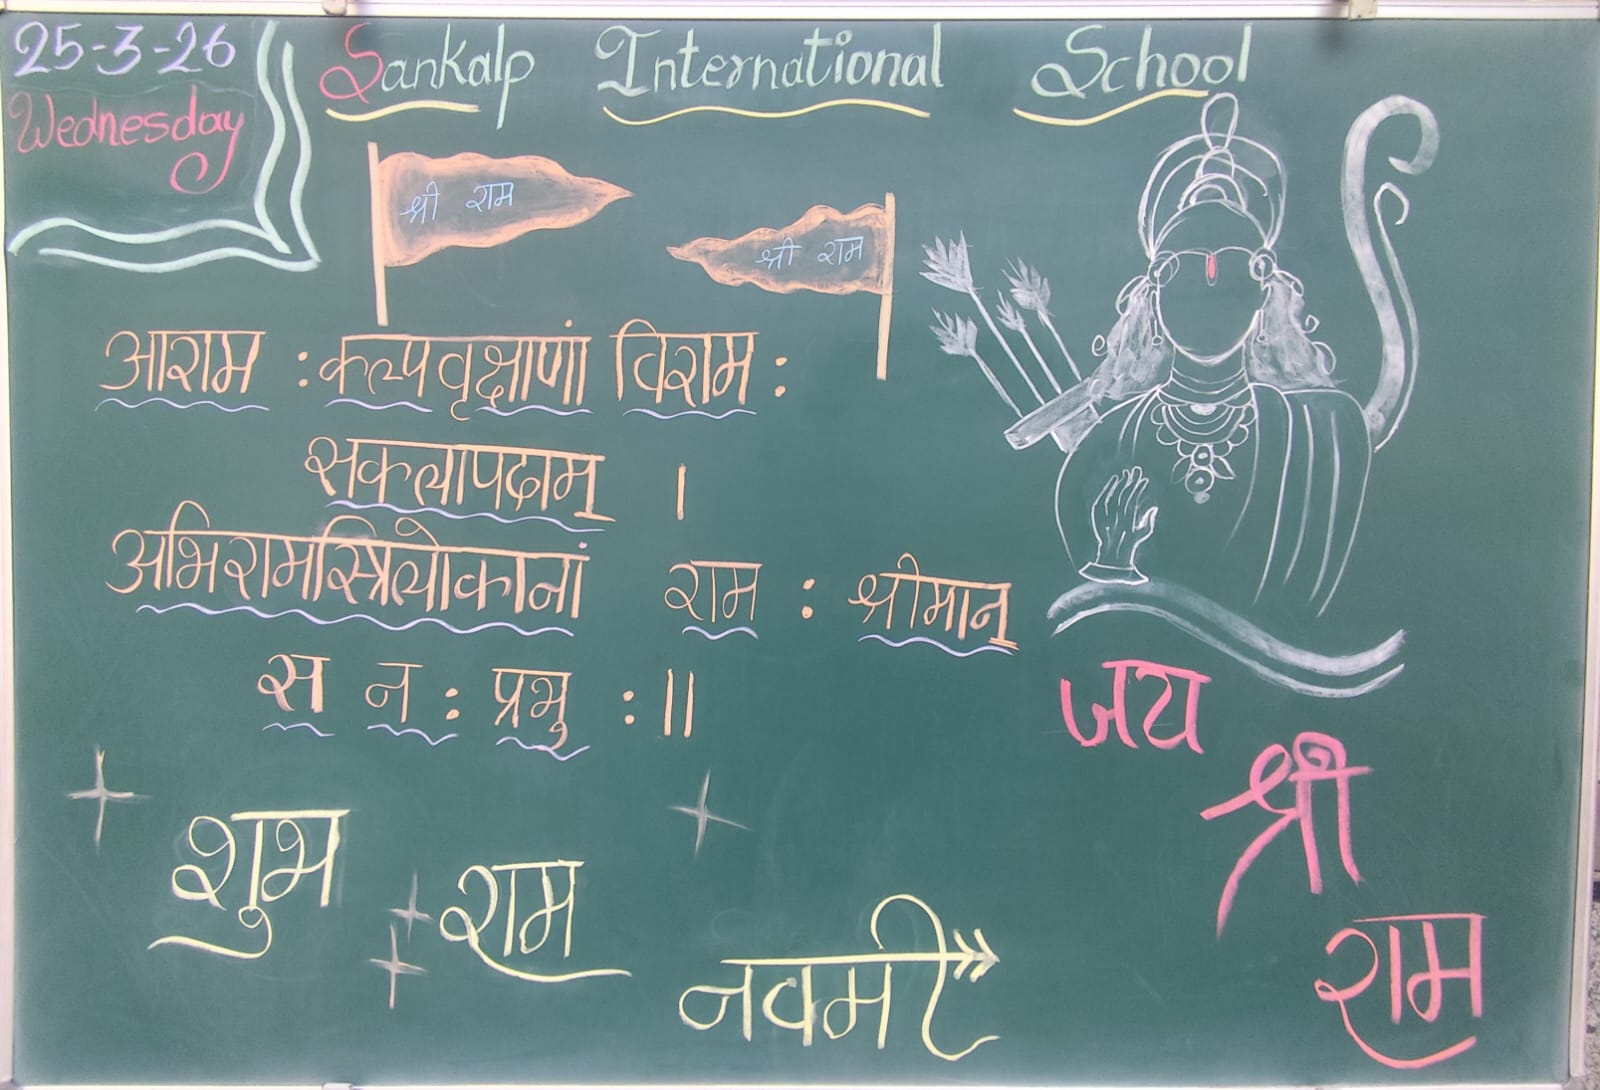 25-3-26
Wednesday
Sankalp International School
श्री राम
श्री राम
आराम : कल्पवृक्षाणां विराम :
सकलापदाम् ।
अभिरामस्त्रिलोकानां राम : श्रीमान्
स न् : प्रभु : ||
जय
श्री
राम
शुभ
राम
नवमी